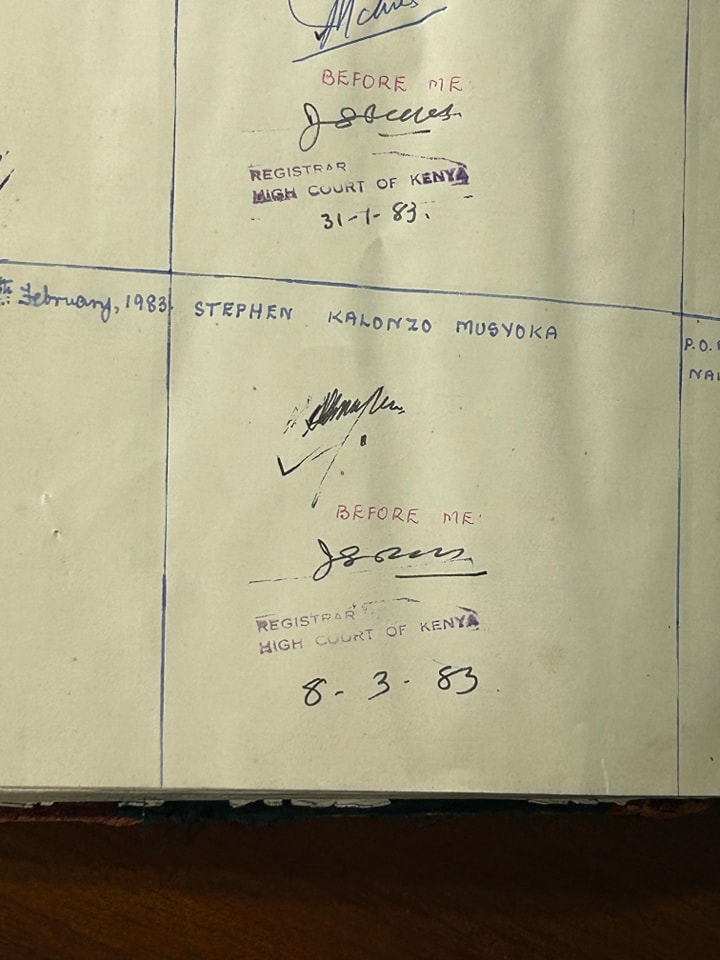 BEFORE ME
REGISTRAR
HIGH COURT OF KENYA
31-1-83.
th February, 1983
STEPHEN KALONZO MUSYOKA
P.O.
BEFORE ME
REGISTRAR
HIGH COURT OF KENYA
8-3-83.